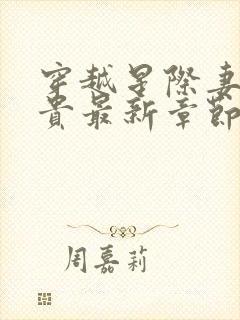 穿越星際妻
貴最新章節
周嘉莉